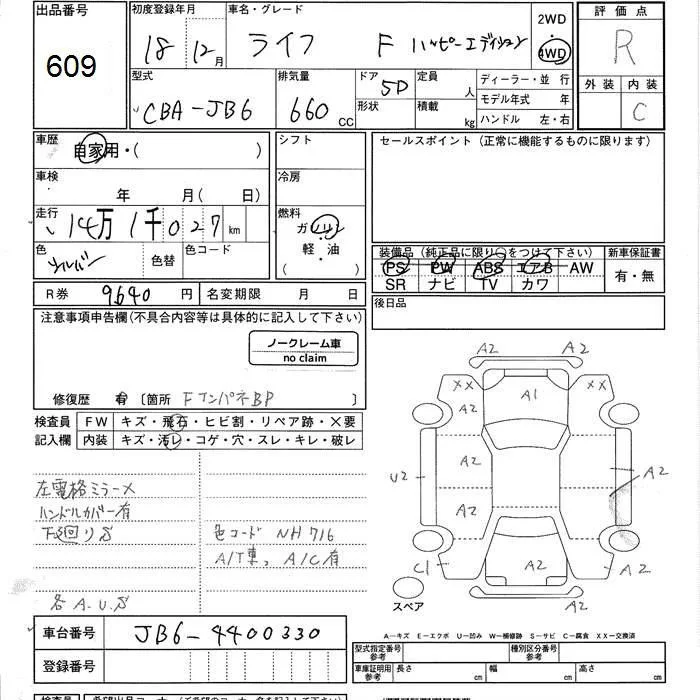 出品番号 初度登録年月 車名・グレード 2WD 評価点
609 18 12月 ライフ F ハッピーエディション 4WD R
型式 排気量 ドア 5D 定員 人 ディーラー・並 行 外装 内装
CBA-JB6 660 CC 形状 積載 kg モデル年式 年 C
ハンドル 左・右
車歴 自家用・( ) シフト セールスポイント (正常に機能するものに限ります)
車検 年 月( 日) 冷房
走行 14万1千027km 燃料 ガソリン
軽・油
( )
色 シルバー 色替 色コード
装備品 (純正品に限り○をつけて下さい) 新車保証書
PS PW ABS エアB AW 有・無
SR ナビ TV カワ
R券 9640 円 名変期限 月 日
後日品
注意事項申告欄(不具合内容等は具体的に記入して下さい)
ノークレーム車
no claim
修復歴 有 〔箇所 FインパネBP 〕
検査員 FW キズ・飛石・ヒビ割・リペア跡・×要
記入欄 内装 キズ・汚レ・コゲ・穴・スレ・キレ・破レ
左電格ミラー×
ハンドルカバー有
下廻りS
色コード NH716
A/T車、A/C有
各A.U.S
A2 A2
XX A1 XX
A2
A2
U2 A2
A2
C1 A2 A2
スペア
A—キズ E—エクボ U—凹み W—補修跡 S—サビ C—腐食 XX—交換済
車台番号 JB6-4400330
登録番号
型式指定番号 参考 種別区分番号 参考
車庫証明用 参考 長さ cm 幅 cm 高さ cm